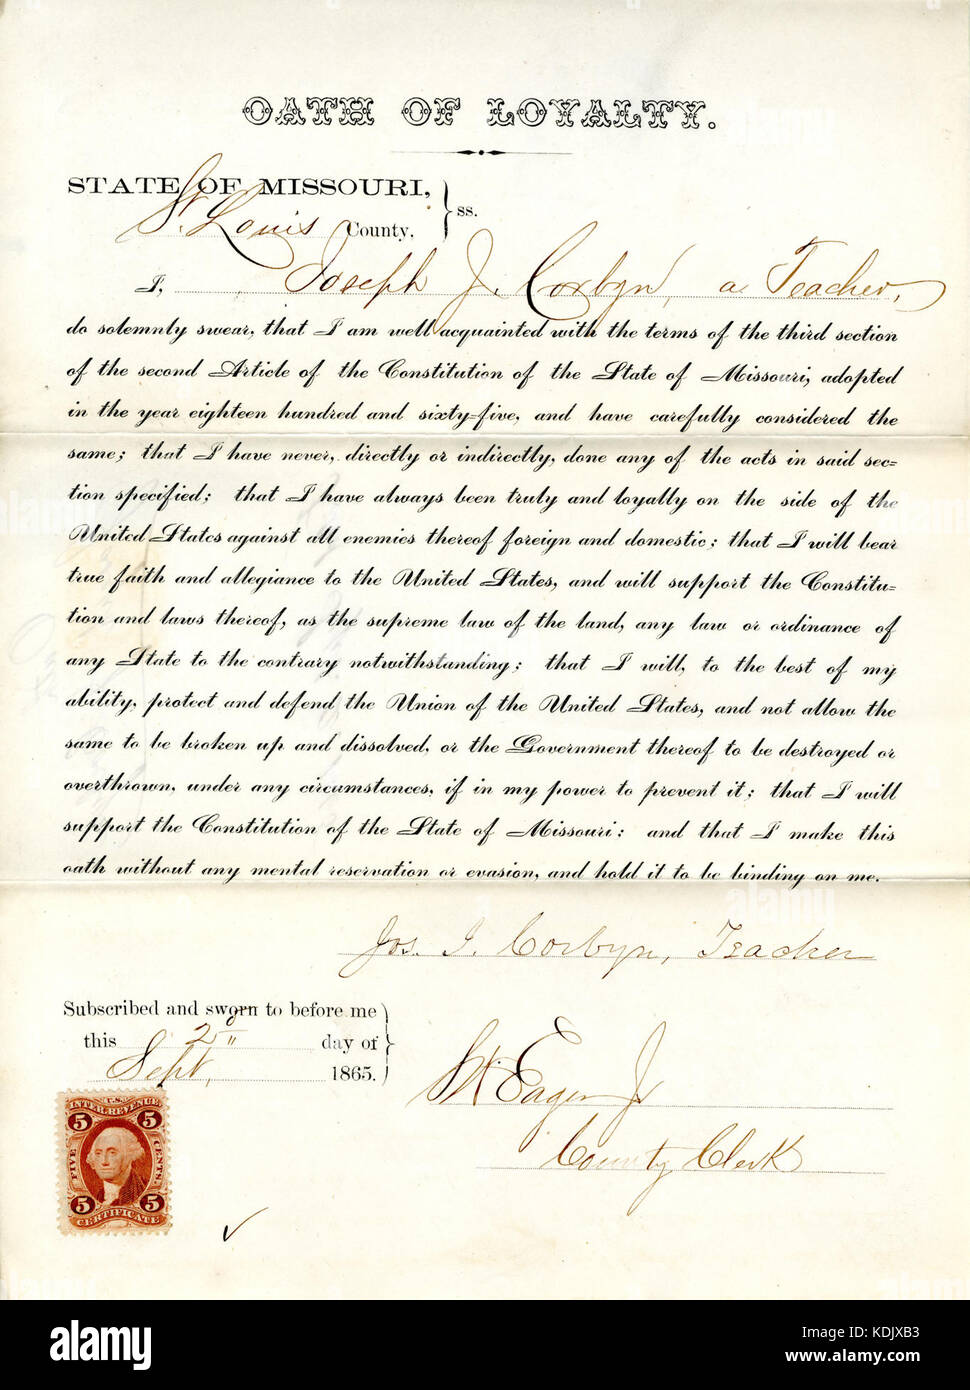 OATH OF LOYALTY.
STATE OF MISSOURI,
St. Louis County, ss.
I, Joseph J. Corbyn, a Teacher,
do solemnly swear, that I am well acquainted with the terms of the third section
of the second Article of the Constitution of the State of Missouri, adopted
in the year eighteen hundred and sixty-five, and have carefully considered the
same; that I have never, directly or indirectly, done any of the acts in said sec-
tion specified; that I have always been truly and loyally on the side of the
United States against all enemies thereof foreign and domestic; that I will bear
true faith and allegiance to the United States, and will support the Constitu-
tion and laws thereof, as the supreme law of the land, any law or ordinance of
any State to the contrary notwithstanding; that I will, to the best of my
ability, protect and defend the Union of the United States, and not allow the
same to be broken up and dissolved, or the Government thereof to be destroyed or
overthrown, under any circumstances, if in my power to prevent it; that I will
support the Constitution of the State of Missouri: and that I make this
oath without any mental reservation or evasion, and hold it to be binding on me.
Jos. J. Corbyn, Teacher
Subscribed and sworn to before me
this 2d day of
Sept, 1865.
Eager Jr
County Clerk
U.S.
INTER. REVENUE
5 5
FIVE CENTS.
5 5
CERTIFICATE
alamy
Image ID: KDJXB3
www.alamy.com